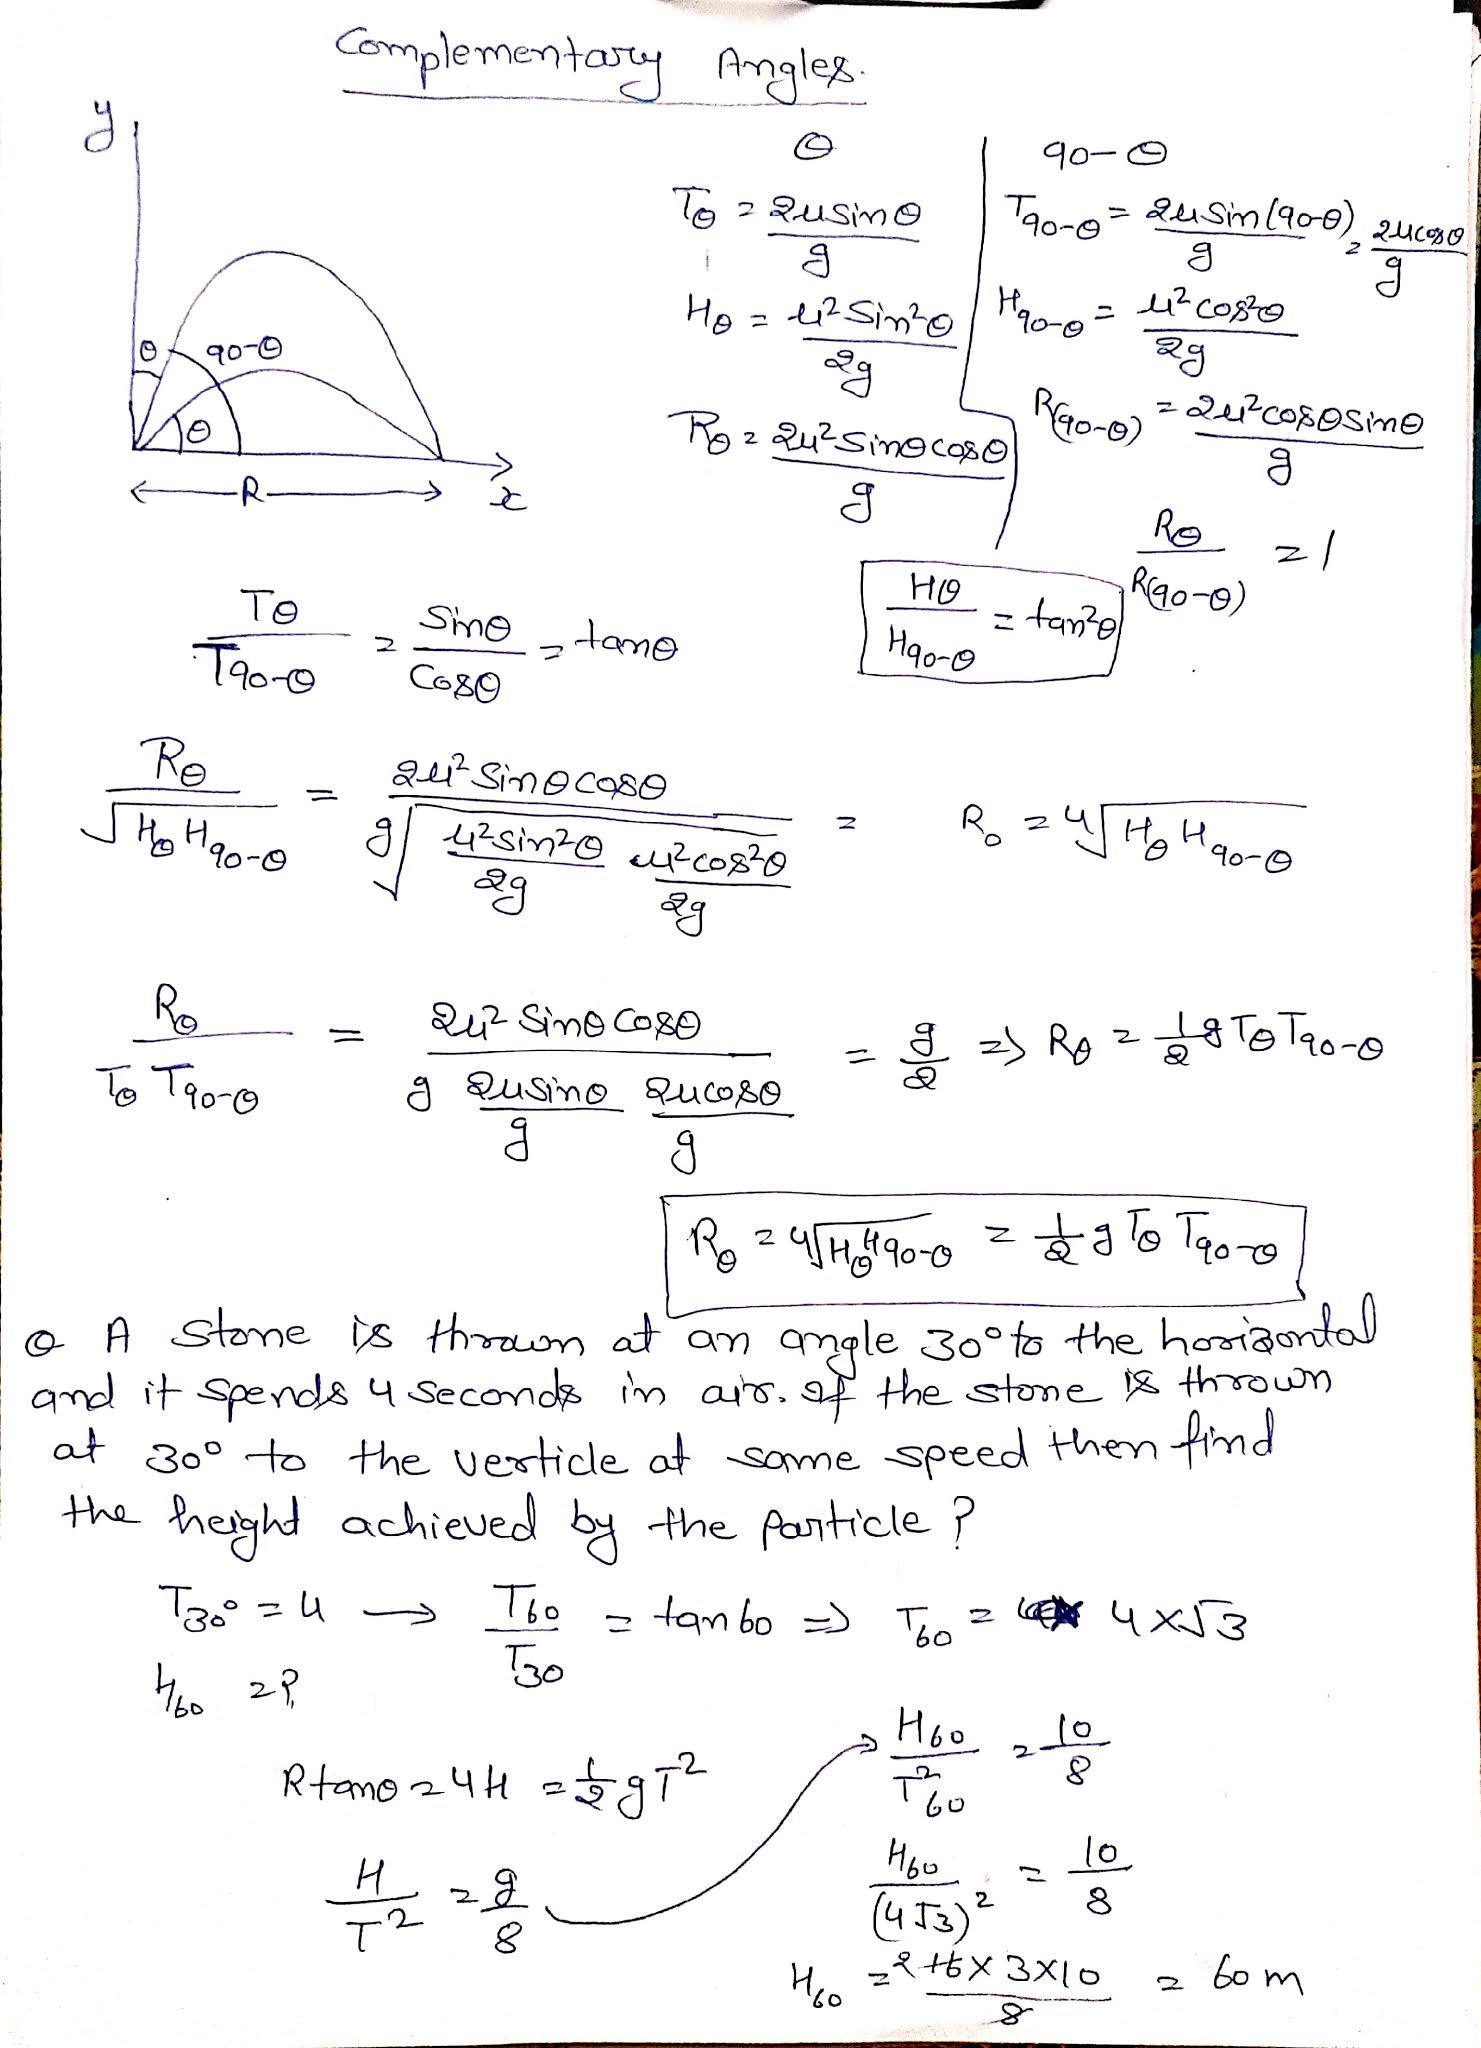 Complementary Angles.
y
θ
90-θ
θ
R
x
θ | 90-θ
Tθ = 2usinθ/g | T90-θ = 2usin(90-θ)/g = 2ucosθ/g
Hθ = u²sin²θ/2g | H90-θ = u²cos²θ/2g
Rθ = 2u²sinθcosθ/g | R(90-θ) = 2u²cosθsinθ/g
Rθ/R(90-θ) = 1
Tθ/T90-θ = sinθ/cosθ = tanθ
Hθ/H90-θ = tan²θ
Rθ/√(Hθ H90-θ) = 2u²sinθcosθ/(g√(u²sin²θ/2g u²cos²θ/2g)) = Rθ = 4√(Hθ H90-θ)
Rθ/(Tθ T90-θ) = 2u²sinθcosθ/(g 2usinθ/g 2ucosθ/g) = g/2 => Rθ = 1/2 g Tθ T90-θ
Rθ = 4√(Hθ H90-θ) = 1/2 g Tθ T90-θ
Q A stone is thrown at an angle 30° to the horizontal
and it spends 4 seconds in air. If the stone is thrown
at 30° to the verticle at same speed then find
the height achieved by the particle?
T30° = 4 → T60/T30 = tan60 => T60 = 4×√3
H60 = ?
Rtanθ = 4H = 1/2 gT²
H/T² = g/8
H60/T²60 = 10/8
H60/(4√3)² = 10/8
H60 = 2 16×3×10/8 = 60m